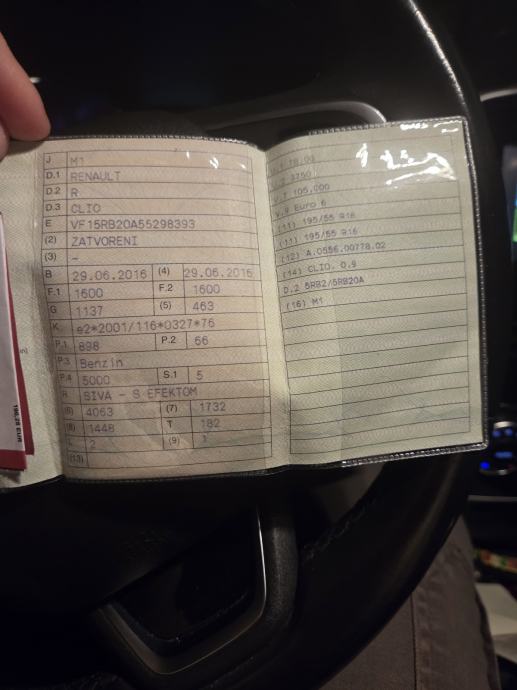 J M1
D.1 RENAULT
D.2 R
D.3 CLIO
E VF15RB20A55298393
(2) ZATVORENI
(3) -
B 29.06.2016 (4) 29.06.2016
F.1 1600 F.2 1600
G 1137 (5) 463
K e2*2001/116*0327*76
P.1 898 P.2 66
P.3 Benzin
P.4 5000 S.1 5
R SIVA - S EFEKTOM
(6) 4063 (7) 1732
(8) 1448 T 182
L 2 (9)
(13)
3750
105,000
V.9 Euro 6
(11) 195/55 R16
(11) 195/55 R16
(12) A.0556.00778.02
(14) CLIO. 0.9
D.2 5RB2/5RB20A
(16) M1